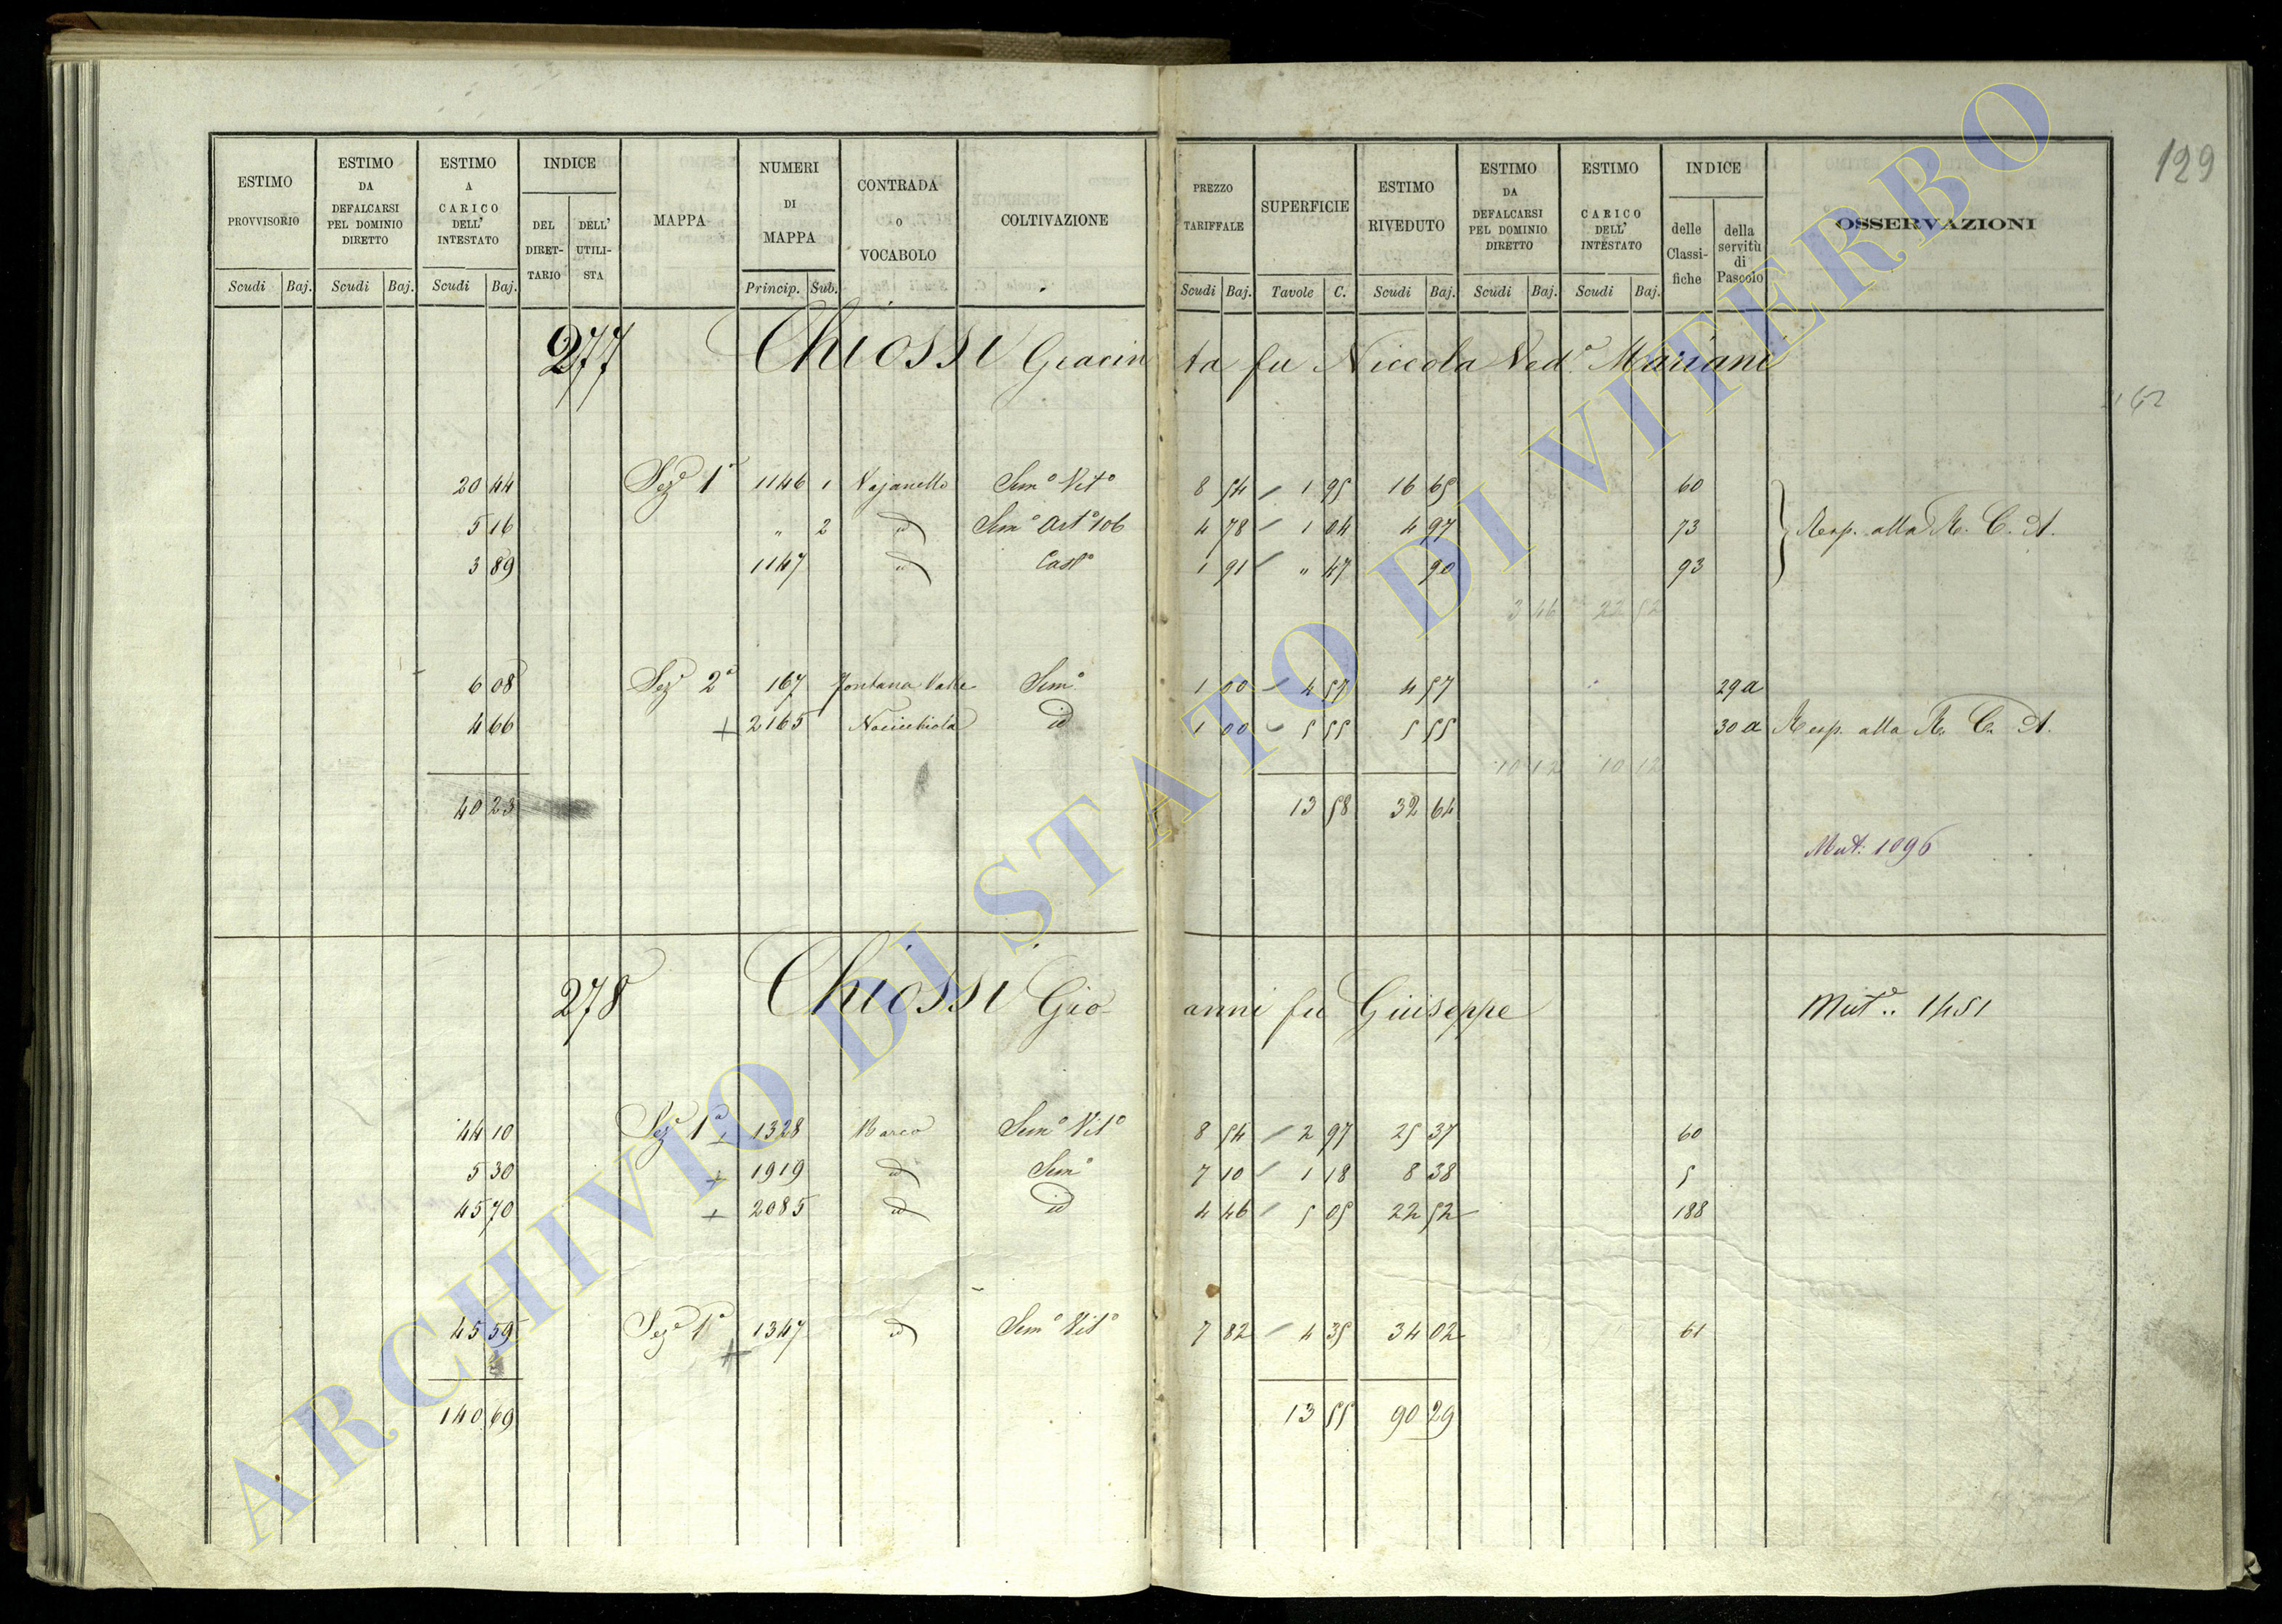 129
ESTIMO PROVVISORIO Scudi Baj.
ESTIMO DA DEFALCARSI PEL DOMINIO DIRETTO Scudi Baj.
ESTIMO A CARICO DELL' INTESTATO Scudi Baj.
INDICE DEL DIRET-TARIO DELL' UTILI-STA
MAPPA
NUMERI DI MAPPA Princip. Sub.
CONTRADA o VOCABOLO
COLTIVAZIONE
PREZZO TARIFFALE Scudi Baj.
SUPERFICIE Tavole C.
ESTIMO RIVEDUTO Scudi Baj.
ESTIMO DA DEFALCARSI PEL DOMINIO DIRETTO Scudi Baj.
ESTIMO A CARICO DELL' INTESTATO Scudi Baj.
INDICE delle Classi-fiche della servitù di Pascolo
OSSERVAZIONI
277 Chiossi Giacinta fu Niccola Ved.ª Mariani
20 44 Sez.e 1ª 1146 1 Vajanello Sem.o Vit.o 8 54 1 95 16 65 60
5 16 " 2 id Sem.o Art.o 106 4 78 1 04 4 97 73 Resp. alla R. C. A.
3 89 1147 " Cast.o 1 91 " 47 90 93
3 46 22 52
6 08 Sez.e 2ª 167 Fontana Valle Sem.o 1 00 4 57 4 57 29 a
4 66 + 2165 Nocicchiola id 1 00 5 55 5 55 30 a Resp. alla R. C. A.
10 12 10 12
40 23 13 58 32 64
Mut: 1096
278 Chiossi Gio-anni fu Giuseppe Mut.e .. 1451
44 10 Sez.e 1ª + 1328 Barco Sem.o Vit.o 8 54 2 97 25 37 60
5 30 + 1919 id Sem.o 7 10 1 18 8 38 5
45 70 + 2085 id id 4 46 5 05 22 52 188
45 59 Sez.e 1ª + 1347 id Sem.o Vit.o 7 82 4 35 34 02 61
140 69 13 55 90 29
ARCHIVIO DI STATO DI VITERBO